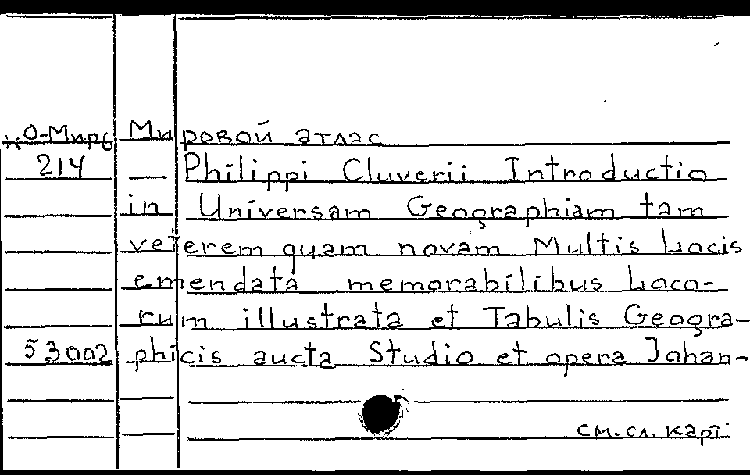 КО-Миръ Мировой атлас
214 — Philippi Cluverii Introductio
in Universam Geographiam tam
veterem quam novam Multis Locis
emendata memorabilibus Loco-
rum illustrata et Tabulis Geogra-
53002 phicis aucta Studio et opera Johan-
см. сл. карт.